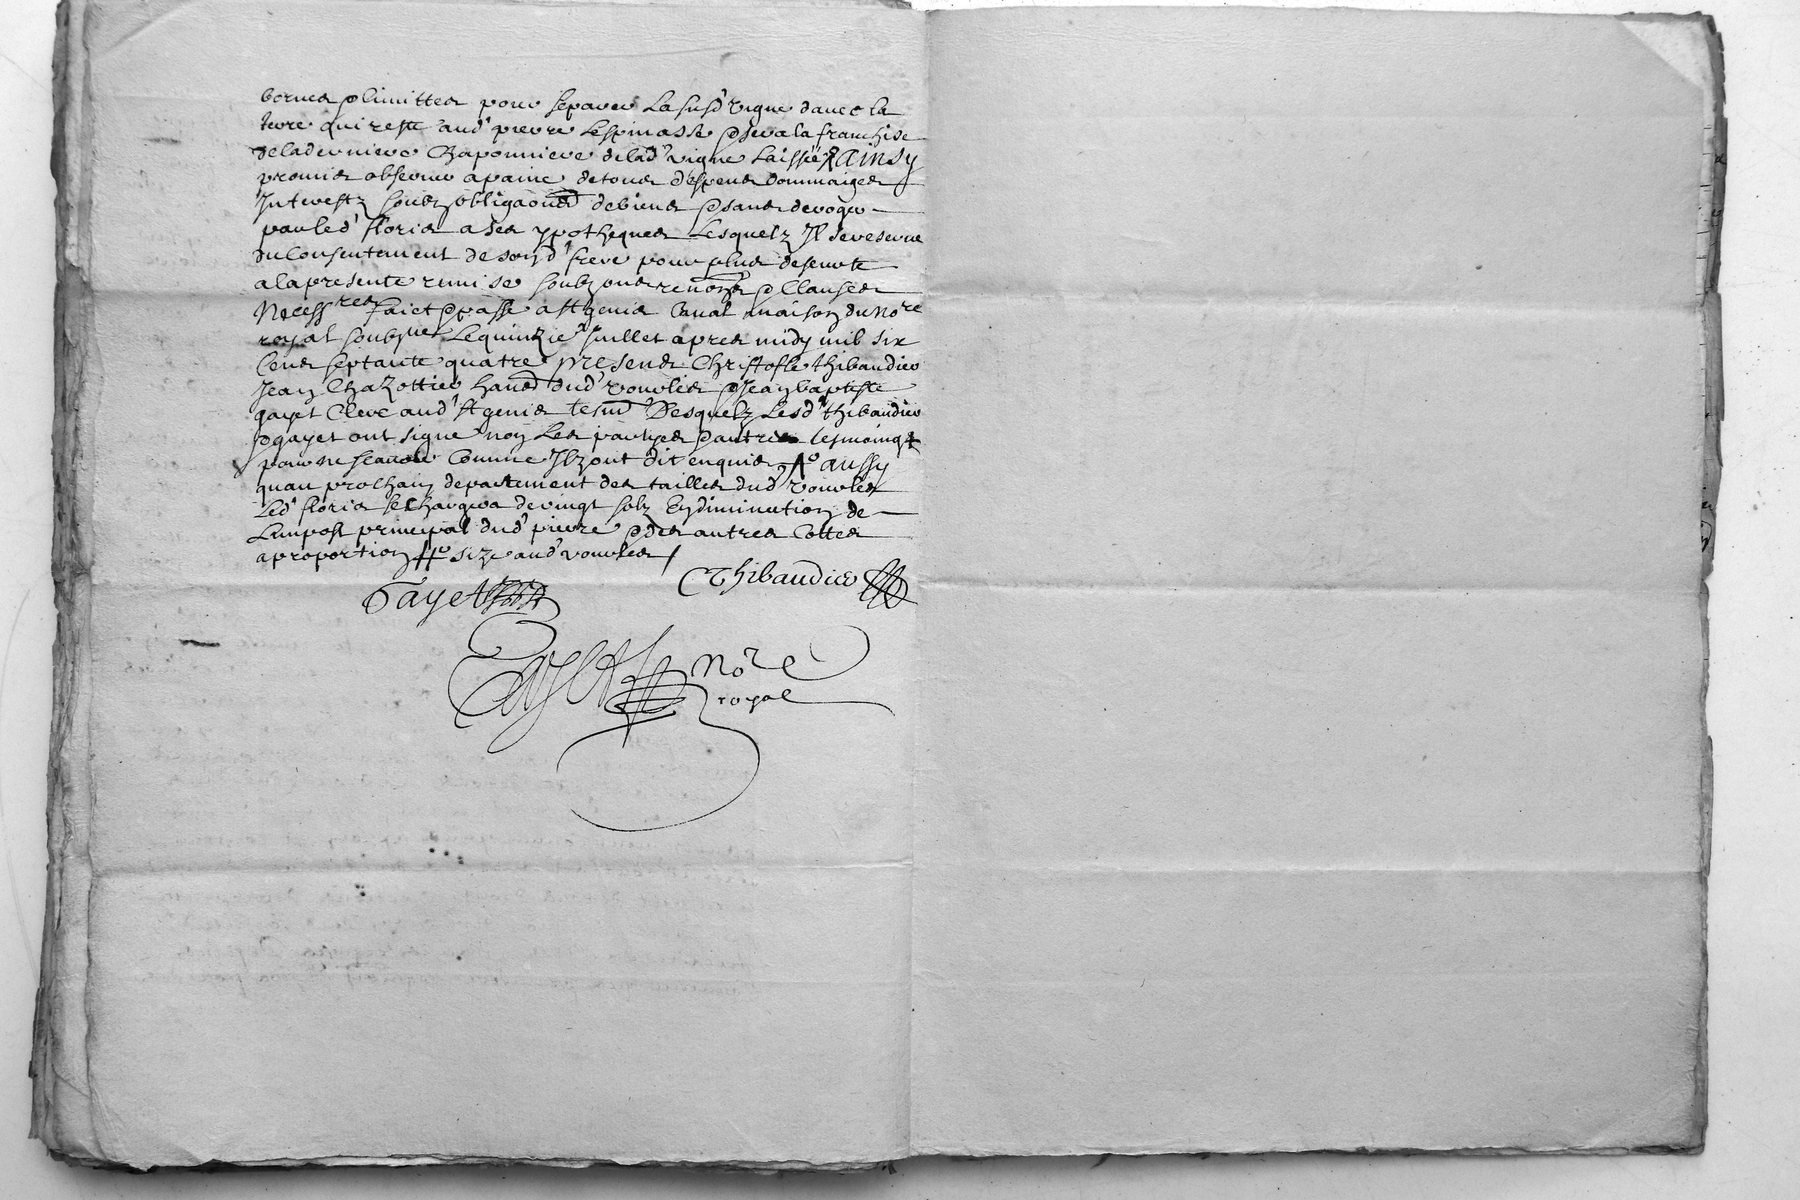 bornes & limittes pour separer La susd vigne davec la
terre qui reste aud pierre Lespinasse & sera la franchise
de la derniere Chaponniere de lad vigne Laissée Ainsy
promis observer a paine de tous despens dommaiges
Interestz soubz obligaons de biens & sans deroger
par led floris a ses ypotheques Lesquelz Il se reserve
du Consentement de sond frere pour plus de seurte
a la presente remise soubz ons renons & Clauses
Necessres faict & passe a St genis Laval maison du Nore
royal soubsne Le quinzie Juillet apres midy mil six
Cens septante quatre presens Christofle thibaudier
Jean Chazottier habnd dud vourles & Jean baptiste
gayet Clerc aud St genis tesms Desquelz Lesd thibaudier
& gayet ont signe non Les partyes & autres tesmoingt
pour ne scavoir Comme Ilz ont dit enquis aussy
quau prochain departement des tailles dud vourles
Led floris se Chargera de vingt solz En diminution de
Limpost principal dud pierre & des autres Cottes
a proportion size aud vourles
Thibaudier
Gayet
Gayet nore
royal